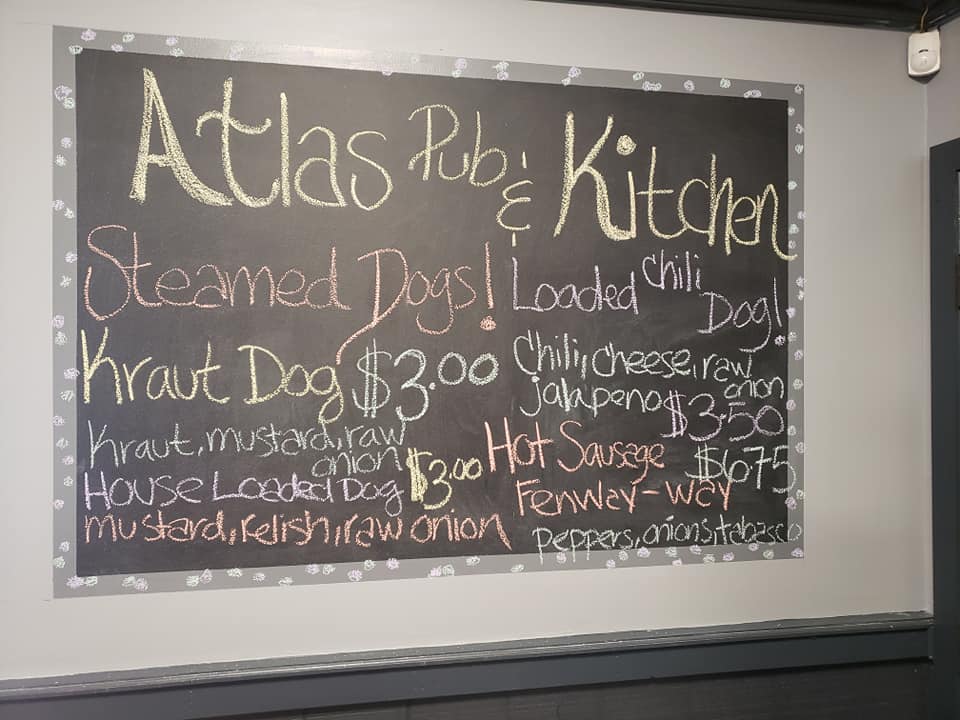 Atlas Pub & Kitchen
Steamed Dogs!
Kraut Dog $3.00
Kraut, mustard, raw
onion
House Loaded Dog $3.00
mustard, relish, raw onion
Loaded Chili
Dog!
Chili, cheese, raw
onion
jalapeno $3.50
Hot Sausege $6.75
Fenway-way
peppers, onions, tabasco